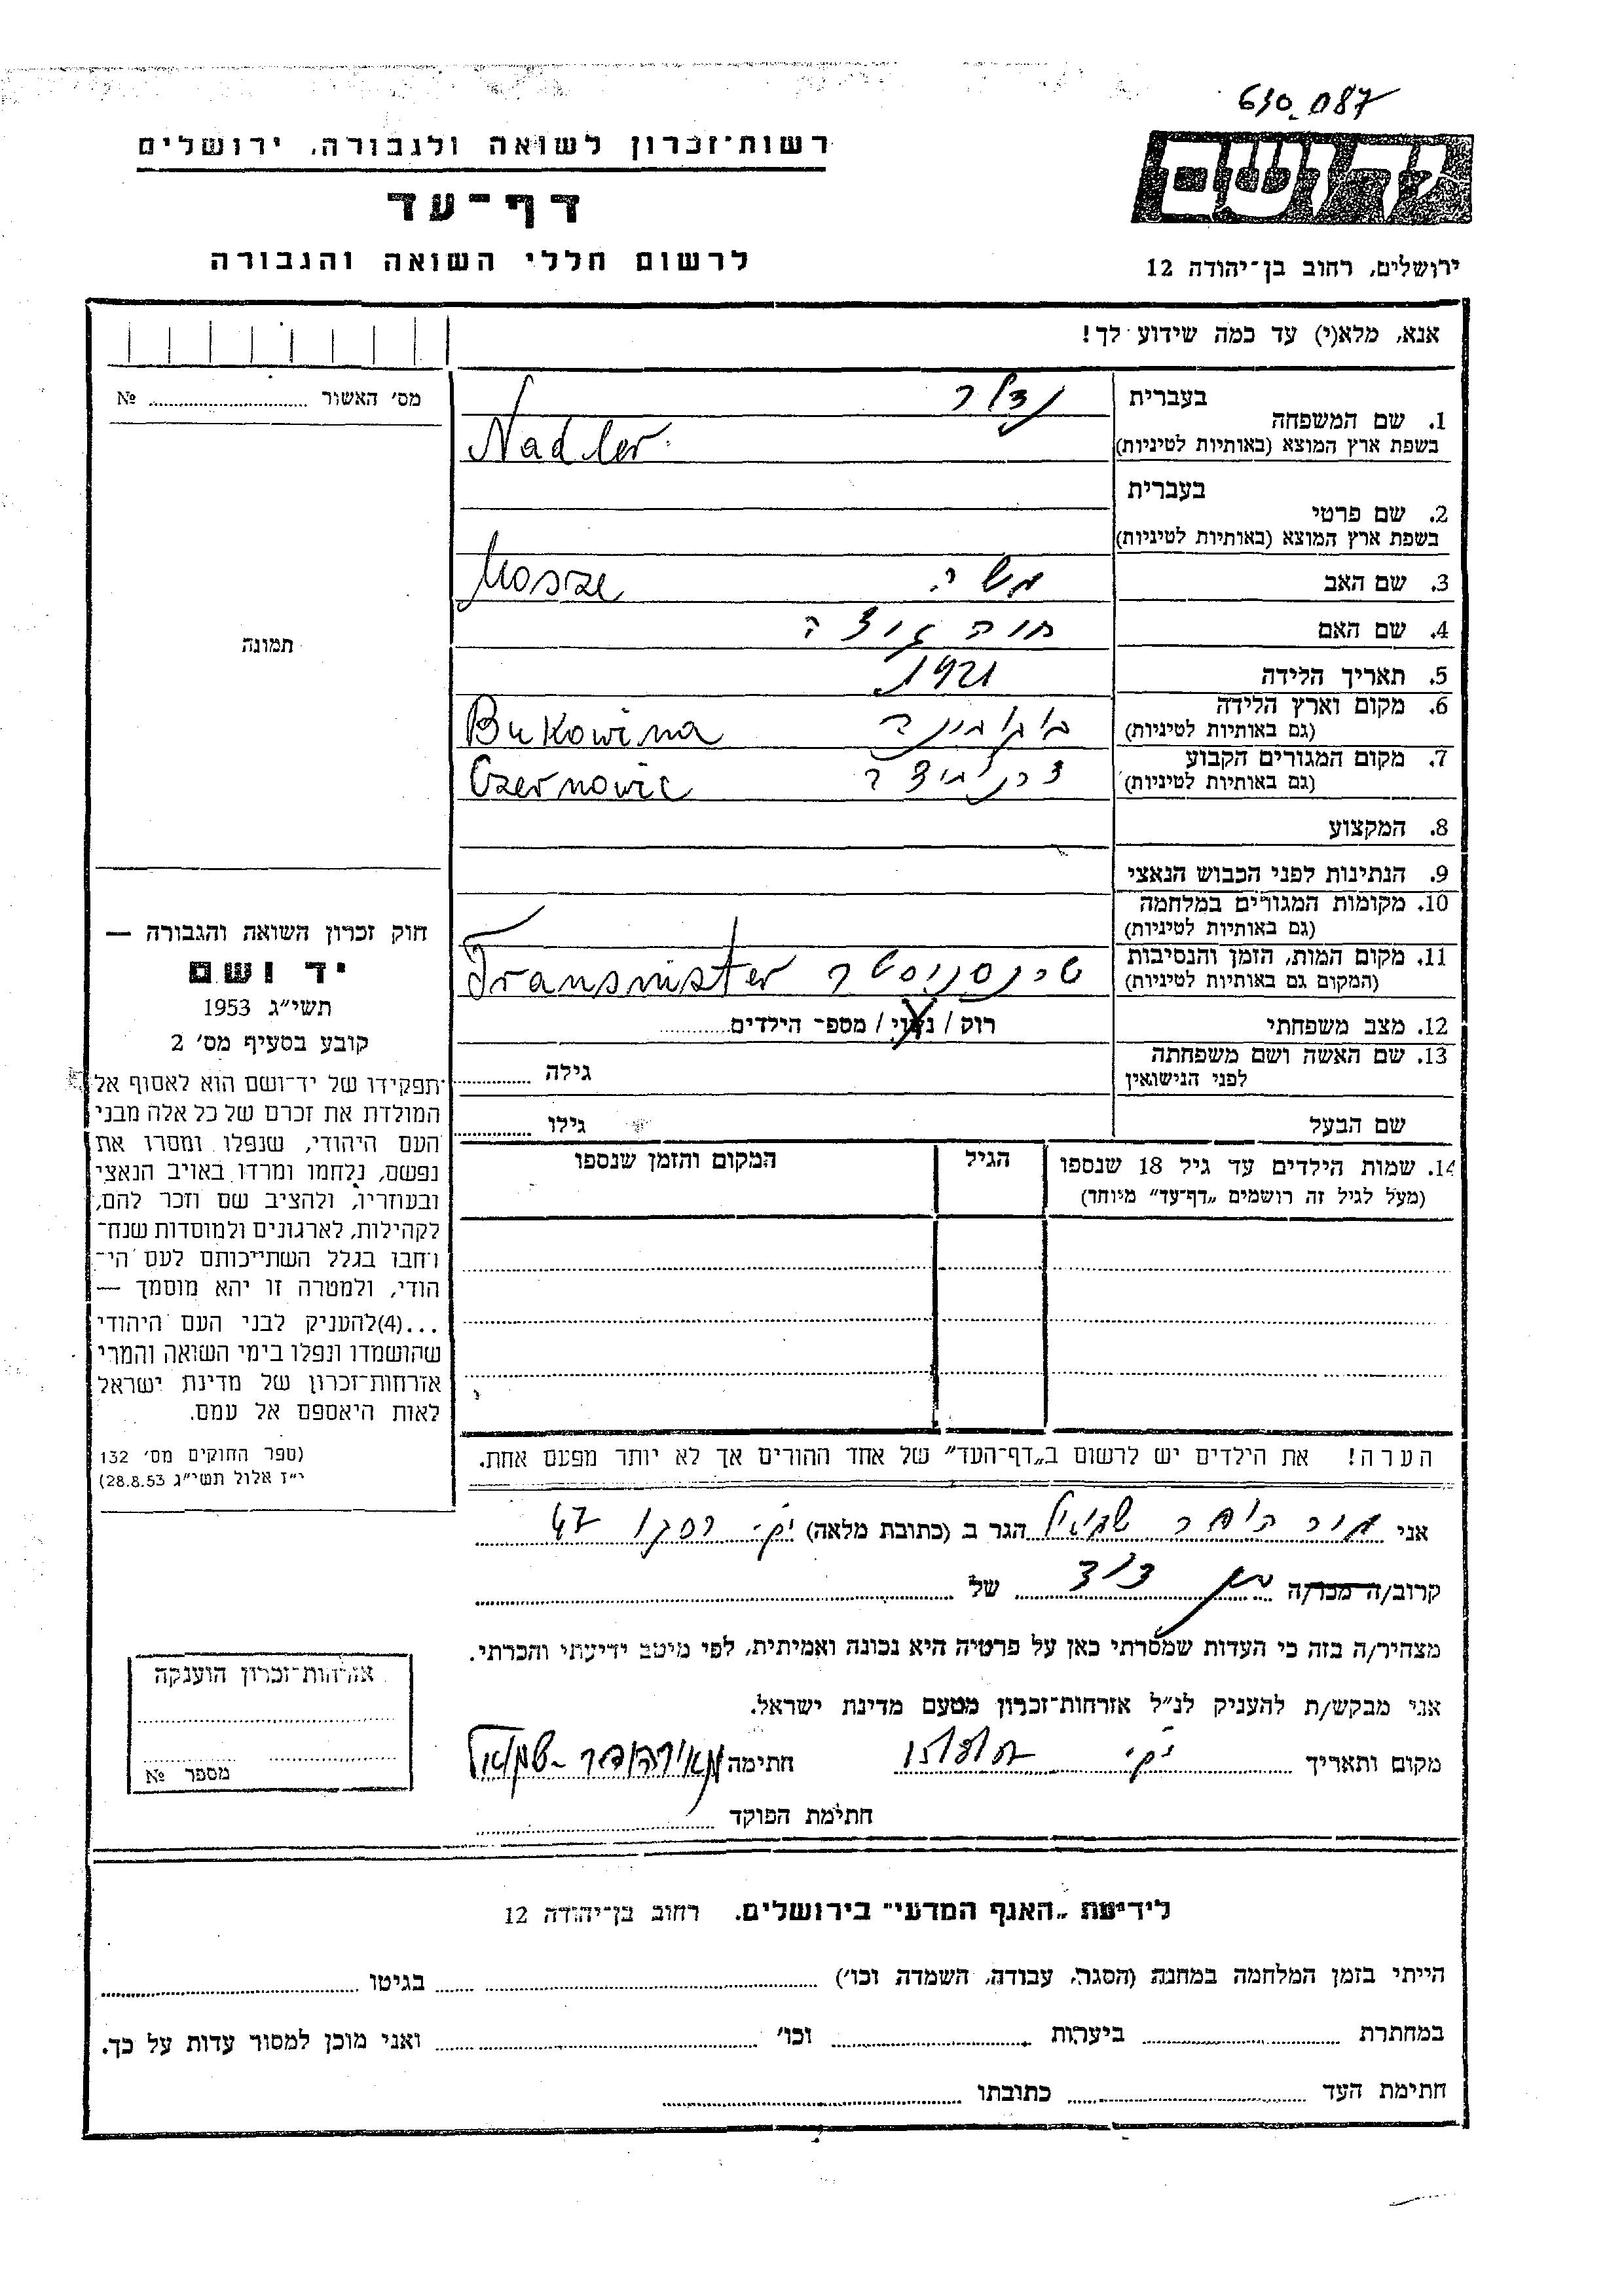 630087
רשות־זכרון לשואה ולגבורה, ירושלים
דף־עד
לרשום חללי השואה והגבורה
ידושם
ירושלים, רחוב בן־יהודה 12
אנא, מלא(י) עד כמה שידוע לך!
מס׳ האשור № 
תמונה
1. שם המשפחה
בעברית נדלר
בשפת ארץ המוצא (באותיות לטיניות) Nadler
2. שם פרטי
בעברית
בשפת ארץ המוצא (באותיות לטיניות)
3. שם האב משה Mosze
4. שם האם חוה
5. תאריך הלידה 1921
6. מקום וארץ הלידה
(גם באותיות לטיניות) בוקובינה Bukowina
7. מקום המגורים הקבוע
(גם באותיות לטיניות) Czernowic
8. המקצוע
9. הנתינות לפני הכבוש הנאצי
10. מקומות המגורים במלחמה
(גם באותיות לטיניות)
11. מקום המות, הזמן והנסיבות
(המקום גם באותיות לטיניות) Transnister
12. מצב משפחתי רוק / נשוי / מספ־ הילדים
13. שם האשה ושם משפחתה
לפני הנישואין גילה
שם הבעל גילו
14. שמות הילדים עד גיל 18 שנספו הגיל המקום והזמן שנספו
(מעל לגיל זה רושמים „דף־עד״ מיוחד)
חוק זכרון השואה והגבורה —
יד ושם
תשי״ג 1953
קובע בסעיף מס׳ 2
תפקידו של יד־ושם הוא לאסוף אל
המולדת את זכרם של כל אלה מבני
העם היהודי, שנפלו ומסרו את
נפשם, נלחמו ומרדו באויב הנאצי
ובעוזריו, ולהציב שם וזכר להם,
לקהילות, לארגונים ולמוסדות שנח־
רחבו בגלל השתייכותם לעם הי־
הודי, ולמטרה זו יהא מוסמך —
...(4)להעניק לבני העם היהודי
שהושמדו ונפלו בימי השואה והמרי
אזרחות־זכרון של מדינת ישראל
לאות היאספם אל עמם.
(ספר החוקים מס׳ 132
י״ז אלול תשי״ג 28.8.53)
הערה! את הילדים יש לרשום ב„דף־העד״ של אחד ההורים אך לא יותר מפעם אחת.
אני שמואל הגר ב (כתובת מלאה) 47
קרוב/ה מכר/ה בן דוד של
מצהיר/ה בזה כי העדות שמסרתי כאן על פרטיה היא נכונה ואמיתית, לפי מיטב ידיעתי והכרתי.
אני מבקש/ת להעניק לנ״ל אזרחות־זכרון מטעם מדינת ישראל.
מקום ותאריך חתימה שמואל
חתימת הפוקד
אזרחות־זכרון הוענקה
מספר №
לידיעת „האגף המדעי״ בירושלים. רחוב בן־יהודה 12
הייתי בזמן המלחמה במחנה (הסגר, עבודה, השמדה וכו׳) בגיטו
במחתרת ביערות וכו׳ ואני מוכן למסור עדות על כך.
חתימת העד כתובתו